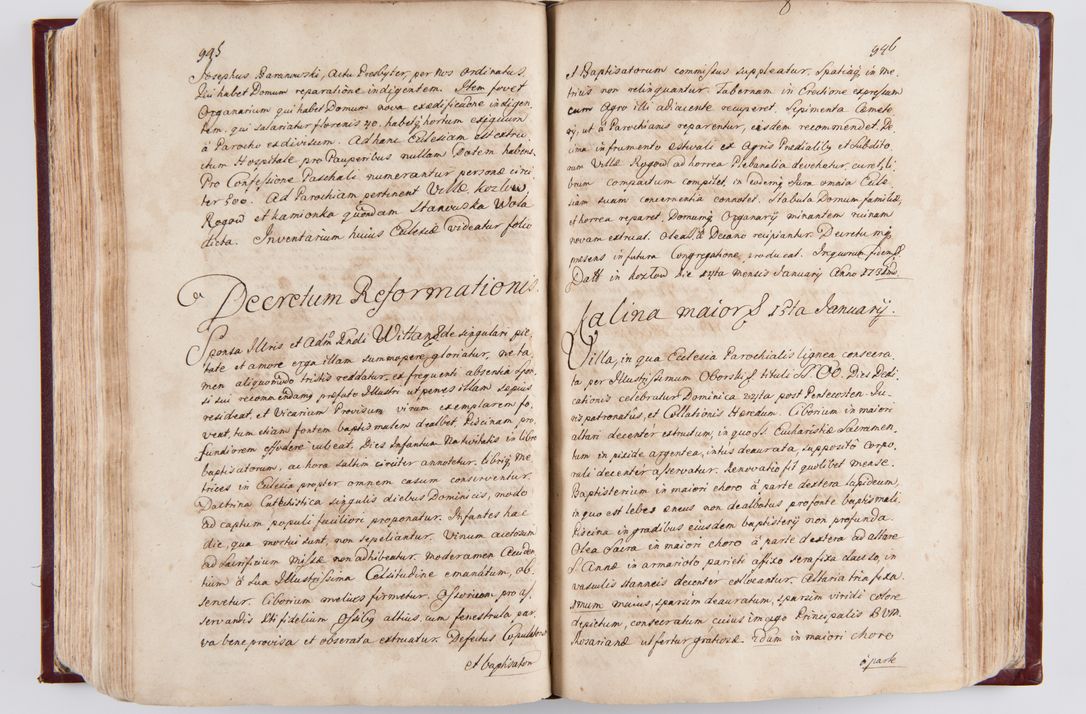 945
Josephus Baranowski, actu Presbyter, per nos ordinatus
qui habet Domum reparatione indigentem. Item fovet
Organarium qui habet Domum nova exædificatione indigen
tem, qui salariatur florenis 40. habetq hortum exiguum
à Parocho exdivisum. Ad hanc Ecclesiam est extru
ctum Hospitale pro Pauperibus nullam Dotem habens.
Pro Confessione Paschali numerantur personæ circi
ter 500. Ad Parochiam pertinent Villæ Kozlow,
Rogow et Kamionka quondam Stanowska Wola
dicta. Inventarium huius Ecclesiæ videatur folio
Decretum Reformationis.
Sponsa Illris et Adm Rndi Wittan de singulari pie
tate et amore erga illam summopere gloriatur, ne ta
men aliquomodo tristis reddatur, ex frequenti absentia Spon
si sui recomendamus præfato Illustri ut penes illam sæpius
resideat, et Vicarium Provisum virum exemplarem fo
veat, tum etiam fontem baptismalem dealbet, Piscinam pro
fundiorem effodere iubeat. Dies Infantum Nativitatis in libro
baptisatorum, ac hora saltim circiter annotetur. libriq me
trices in Ecclesia propter omnem casum conserventur.
Doctrina Catechistica singulis diebus Dominicis, modo
ad captum populi faciliori proponatur. Infantes hac
die, qua mortui sunt, non sepeliantur. Vinum acetosum
ad Sacrificium Missæ non adhibeatur. Moderamen
tium à sua Illustrissima Celsitudine emanatum, ob
servetur. Ciborium melius firmetur. Ossorium pro as
servandis Xti fidelium Ossibq altius, cum fenestrula par
va bene provisa et obserata extruatur. Defectus Copulatorum
et baptisatorum
946
et Baptisatorum commissus suppleatur. Spatiaq in me
tricis non relinquantur. Tabernam in Erectione expressam
cum Agro illi adiacente recuperet. Sepimenta Cæmete
rij, ut à Parochianis reparentur, eisdem recommendet. De
cima in frumento ex Agris Predialibq et Subdito
rum Villæ Rogow ad horrea Plebanalia devehatur, curet, li
brum compactum compilet, in eudemq Jura omnia Eccle
siam suam concernentia connotet. Stabula Domum familiæ,
et horrea reparet, Domumq Organarij minantem ruinam
novam extruat. Olea à Decano recipiantur. Decretumq
præsens in futura Congregatione producat. In quorum fidem
Datt in Kozlow Die 14ta Mensis January Anno
Kalina maior 15ta Januarij.
Villa, in qua Ecclesia Parochialis lignea consecra
ta per Illustrissimum Oborski tituli SS. OO. Dies Dedi
cationis celebratur Dominica post Pentecosten. Ju
ris patronatus, et Collationis Hæredum. Ciborium in maiori
altari decenter extructum, in quo SS. Eucharistiæ Sacramen
tum in pixide argentea, intus deaurata, supposito Corpo
rali decenter asservatur. Renovatio fit quolibet mense.
Baptisterium in maiori choro à parte dextera lapideum,
in quo est lebes æneus non dealbatus pro fonte baptismali.
Piscina in gradibus eiusdem baptisterij non profunda.
Olea Sacra in maiori choro à parte dextera ad altare
S. Annæ in armarioto parieti affixo sera fixa clauso, in
vasculis stanneis decenter collocantur. Altaria tria fixa.
1mum maius, sparsim deauratum, sparsim viridi colore
depictum, consecratum cuius imago Principalis BVM.
Rosarianæ ut fertur gratiosæ. 2dum in maiori choro
à parte